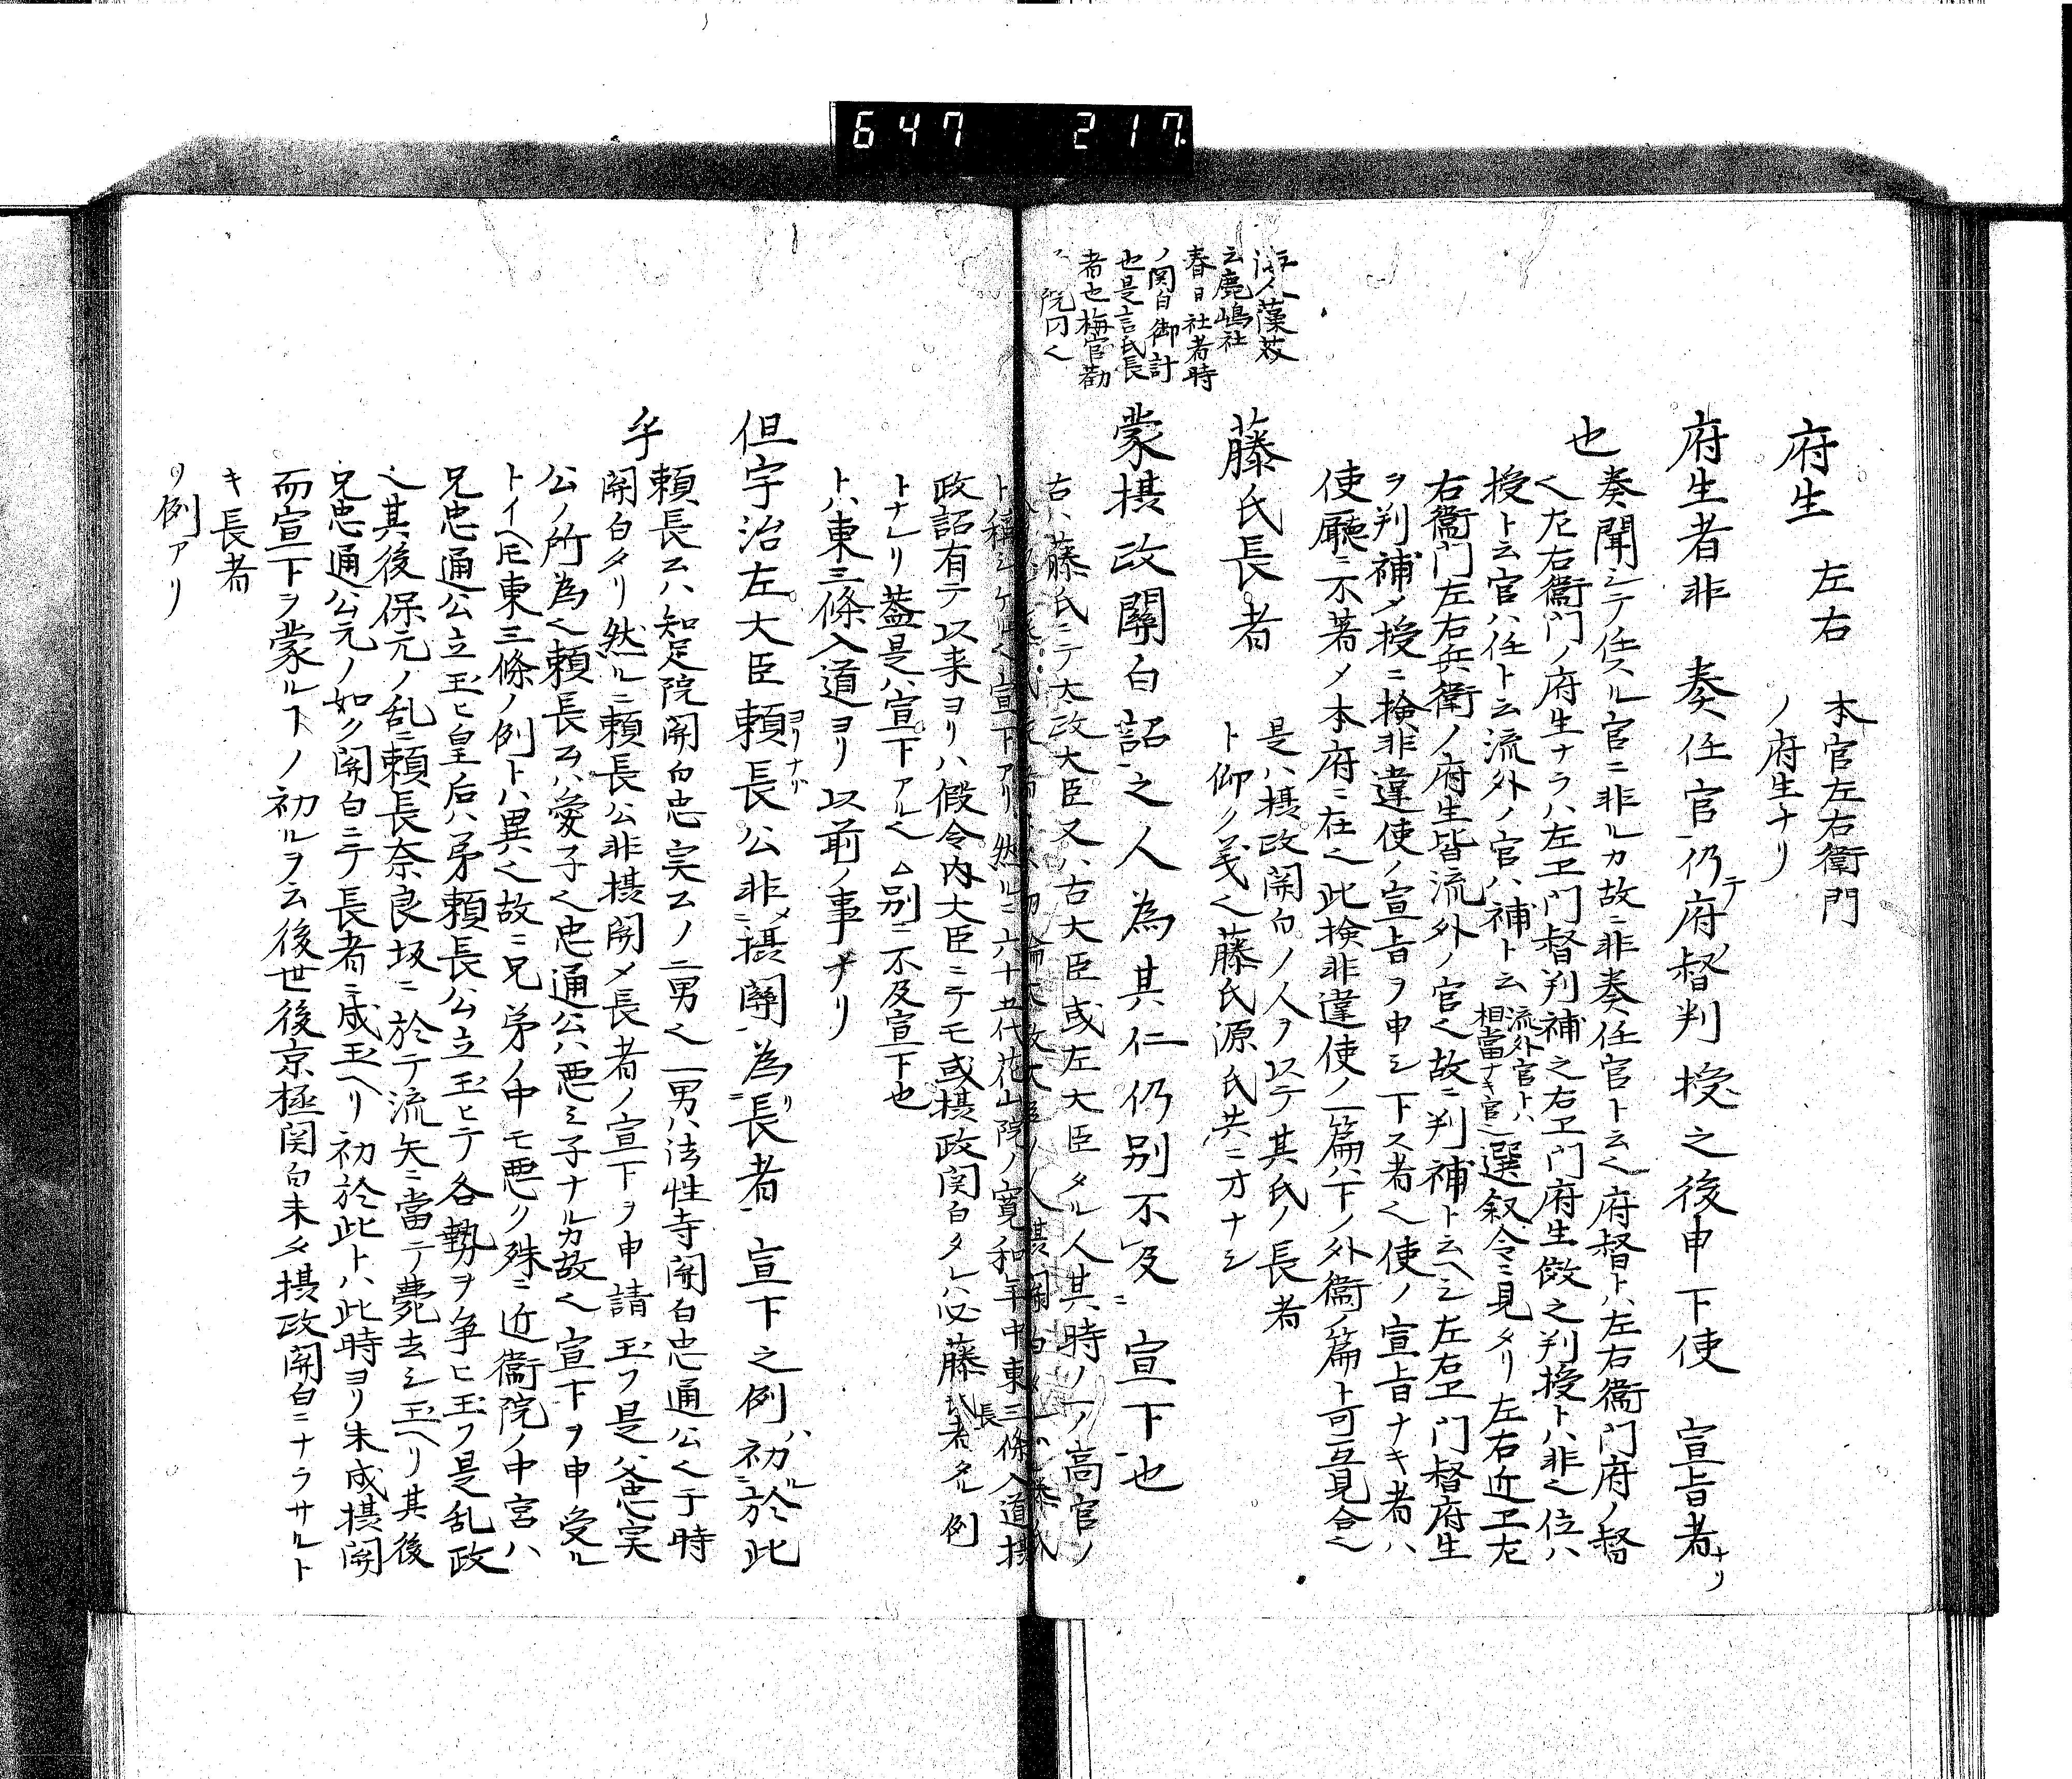 647 217
府生 左右 本官左右衛門
ノ府生ナリ
府生者非 奏任官仍テ府督ノ判授之後申下使 宣旨者ナリ
也
奏聞シテ任スル官ニ非ルカ故ニ非奏任官ト云く府督トハ左右衞门府ノ督
く左右衞门ノ府生ナラハ左卫门督判補之右卫门府生倣之判授トハ非之位ハ
授ト云官ハ任ト云流外ノ官ハ補ト云 流外官トハ
相當ナキ官之 選叙令ニ見タリ左右近卫左
右衞门左右兵衛ノ府生皆流外ノ官く故ニ判補ト云ヘシ左右卫门督府生
ヲ判補メ授ニ検非違使ノ宣旨ヲ申シ下ス者く使ノ宣旨ナキ者ハ
使廰ニ不著メ本府ニ在く此検非違使ノ一篇ハ下ノ外衞ノ篇ト可互見合之
藤氏長者 是ハ摂政関白ノ人ヲ以テ其氏ノ長者
ト仰ク義く藤氏源氏共ニ才ナシ
云鹿嶋社
春日社者時
ノ関白御計
也是言氏長
者也梅宮勸
院同く
蒙摂政關白詔之人為其仁仍别不及 宣下也
右ハ藤氏ニテ太政大臣又ハ右大臣或左大臣タル人其時ノ一ノ高官ノ
ト稱シケル之宣下アリ然ルニ六十五代花山院ノ寛和年中東三條入道摂
政詔有テ以来ヨリハ假令内大臣ニテモ或摂政関白タレハ必藤氏長者タル例
トナレリ蓋是ハ宣下アルヘ厶别ニ不及宣下也
トハ東三條入道ヨリ以前ノ事ナリ
但宇治左大臣頼長ヨリナガ公非メ摂關ニ為リ長者 宣下之例ハ初ルニ於此
乎
頼長公ハ知足院関白忠実公ノ二男く一男ハ法性寺関白忠通公く于時
関白タリ然ルニ頼長公非摂関メ長者ノ宣下ヲ申請玉フ是父忠実
公ノ所為く頼長公ハ愛子く忠通公ハ悪ミ子ナルカ故く宣下ヲ申受ル
トイヘ𪜈東三條ノ例トハ異く故ニ兄弟ノ中モ悪ク殊ニ近衞院ノ中宮ハ
兄忠通公立玉ヒ皇后ハ弟頼長公立玉ヒテ各勢ヲ争ヒ玉フ是乱政
く其後保元ノ乱ニ頼長奈良坂ニ於テ流矢ニ當テ薨去シ玉ヘリ其後
兄忠通公元ノ如ク関白ニテ長者ニ成玉ヘリ初於此トハ此時ヨリ未成摂関
而宣下ヲ蒙ルヿノ初ルヲ云後世後京極関白未タ摂政関白ニナラサルト
キ長者
ヲ例アリ